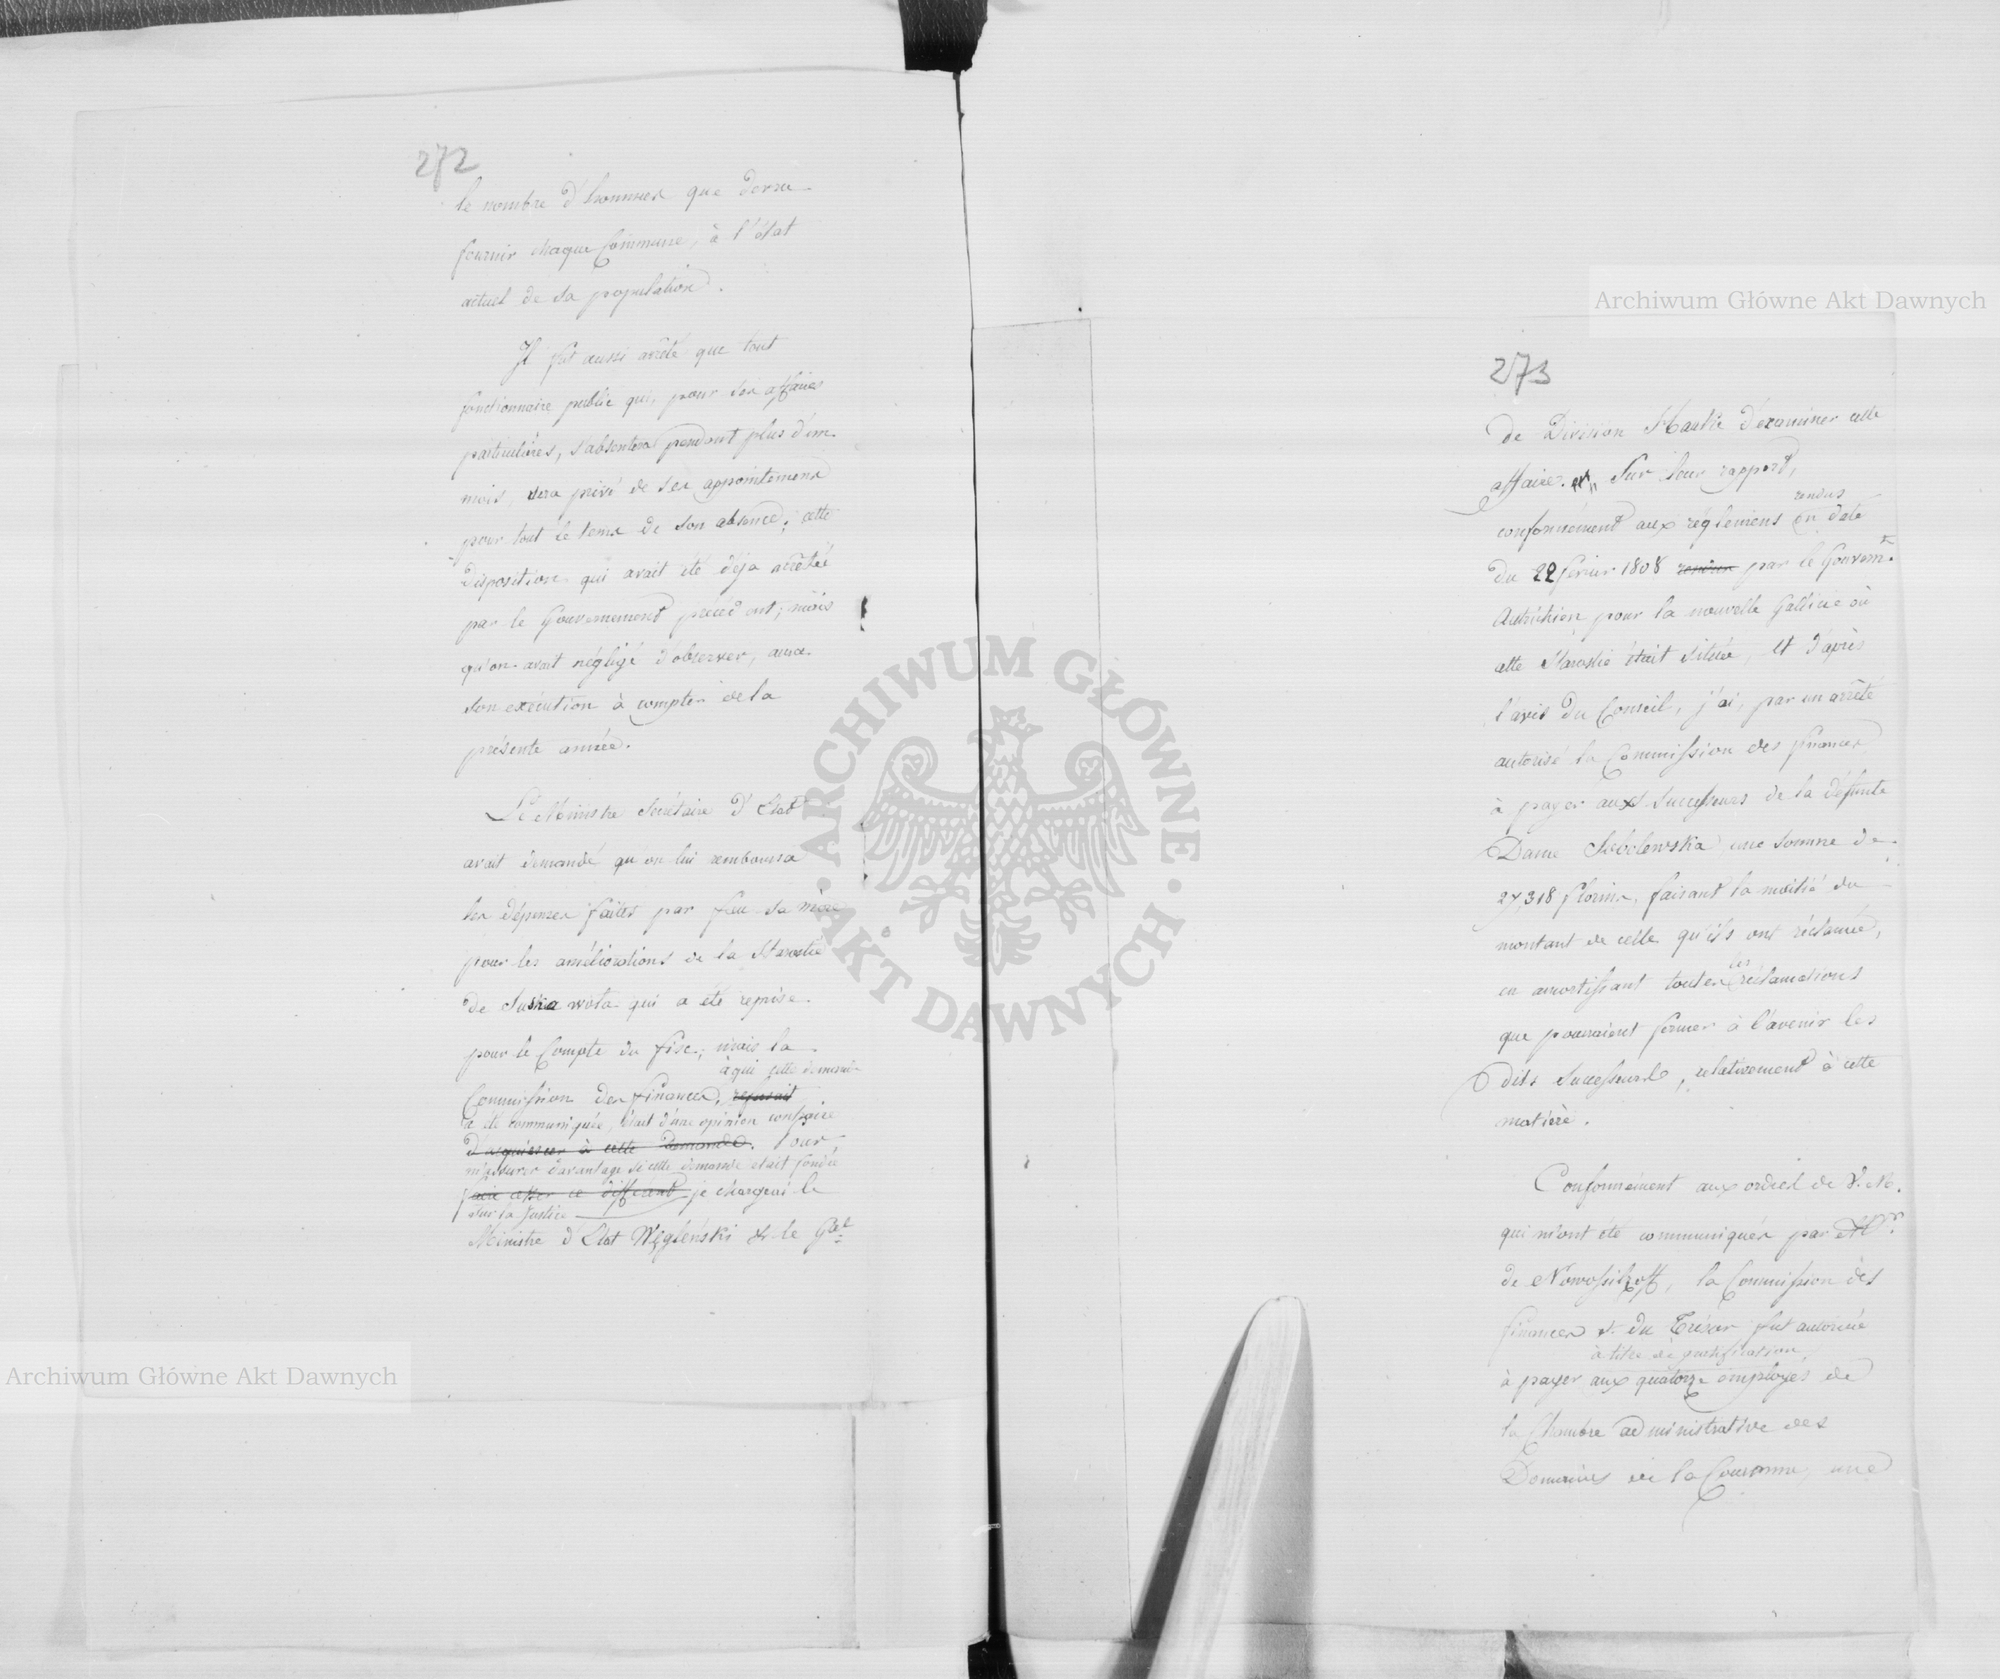 272
le nombre d'hommes que devra
fournir chaque Commune, à l'état
actuel de sa population.
Il fut aussi arrêté que tout
fonctionnaire public qui, pour ses affaires
particulières, s'absentera pendant plus d'un
mois, sera privé de ses appointemens
pour tout le tems de son absence; cette
disposition qui avait été déja arrêtée
par le Gouvernement précédent, mais
qu'on avait négligé d'observer, aura
son exécution à compter de la
présente année.
Le Ministre Secrétaire d'Etat
avait demandé qu'on lui remboursa
les dépenses faites par feu sa mère
pour les améliorations de la Starostie
de Suska wola qui a été reprise
pour le Compte du fisc; mais la
à qui cette demande
Commission des finances, refusait
a été communiquée, était d'une opinion contraire
d'acquiescer à cette demande. Pour
m'assurer davantage si cette demande etait fondée
faire cesser ce différend je chargeai le
sur la justice
Ministre d'Etat Węgleński & le Gal
273
de Division Hauke d'examiner cette
affaire. et Sur leur rapport,
rendus
conformément aux règlemens en date
du 22 fevrier 1808 rendus par le Gouvernt
Autrichien pour la nouvelle Gallicie où
cette Starostie était située, et d'après
l'avis du Conseil, j'ai, par un arrêté
autorisé la Commission des finances
à payer aux successeurs de la défunte
Dame Sobolewska une somme de
27,318 florins, faisant la moitié du
montant de celle qu'ils ont réclamée,
les
en amortissant toutes réclamations
que pourraient former à l'avenir les
dits Successeurs, relativement à cette
matière.
Conformément aux ordres de V. M.
qui m'ont été communiqués par Mr.
de Nowosiltzoff, la Commission des
finances & du Trésor fut autorisée
à titre de gratification
à payer aux quatorze employés de
la Chambre administrative des
Domaines de la Couronne, une
Archiwum Główne Akt Dawnych
Archiwum Główne Akt Dawnych
ARCHIWUM GŁÓWNE AKT DAWNYCH